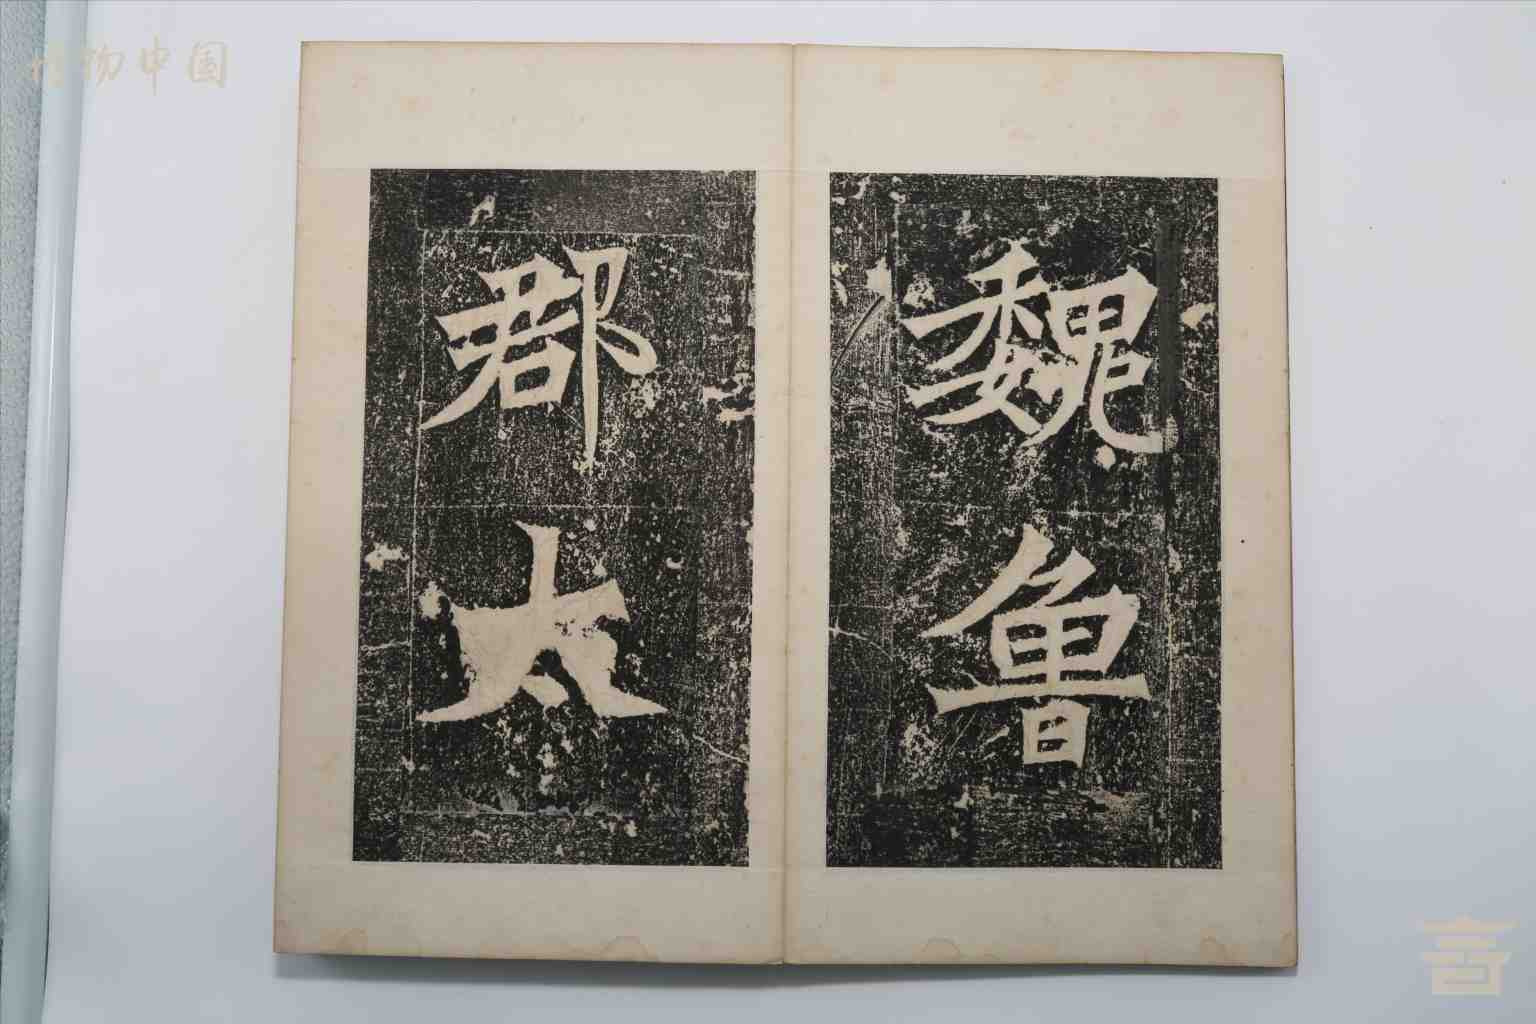 魏魯
郡太
博物中国